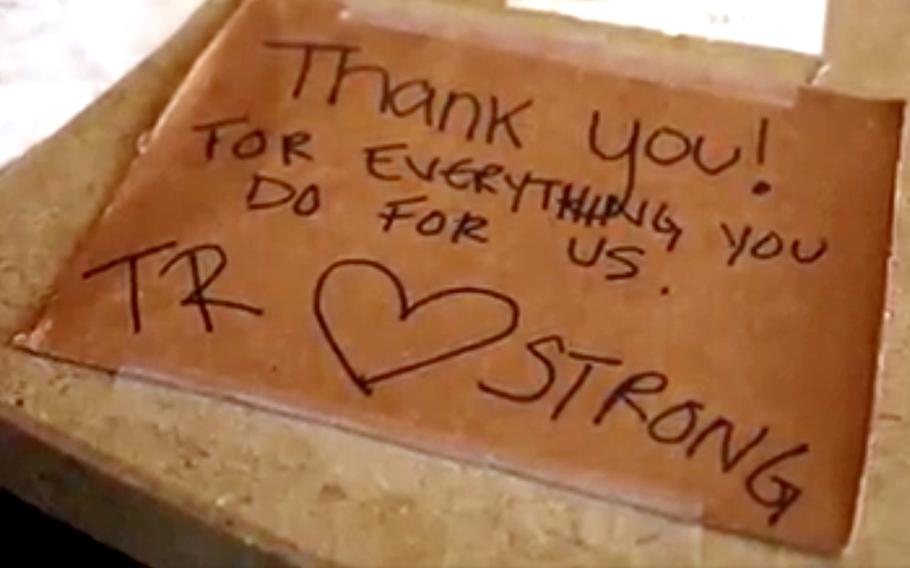 Thank you!
FOR EVERYTHING YOU
DO FOR US.
TR ♡ STRONG